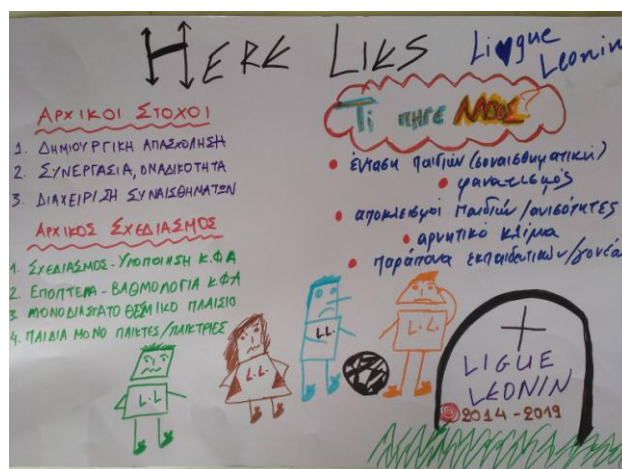 HERE LIES
Ligue
Leonin
ΑΡΧΙΚΟΙ ΣΤΟΧΟΙ
1. ΔΗΜΙΟΥΡΓΙΚΗ ΑΠΑΣΧΟΛΗΣΗ
2. ΣΥΝΕΡΓΑΣΙΑ, ΟΜΑΔΙΚΟΤΗΤΑ
3. ΔΙΑΧΕΙΡΙΣΗ ΣΥΝΑΙΣΘΗΜΑΤΩΝ
ΑΡΧΙΚΟΣ ΣΧΕΔΙΑΣΜΟΣ
1. ΣΧΕΔΙΑΣΜΟΣ - ΥΛΟΠΟΙΗΣΗ Κ.ΦΑ
2. ΕΠΟΠΤΕΙΑ - ΒΑΘΜΟΛΟΓΙΑ Κ.ΦΑ
3 ΜΟΝΟΔΙΑΣΤΑΤΟ ΘΕΣΜΙΚΟ ΠΛΑΙΣΙΟ
4. ΠΑΙΔΙΑ ΜΟΝΟ ΠΑΙΚΤΕΣ/ΠΑΙΚΤΡΙΕΣ
Τι ΠΗΓΕ ΛΑΘΟΣ?
• ένταση παιδιών (συναισθηματική)
• φανατισμός
• αποκλεισμοί παιδιών/ανισότητες
• αρνητικό κλίμα
• παράπονα εκπαιδευτικών/γονέων
L.L.
L.L.
L.L.
L.L.
LIGUE
LEONIN
2014-2019